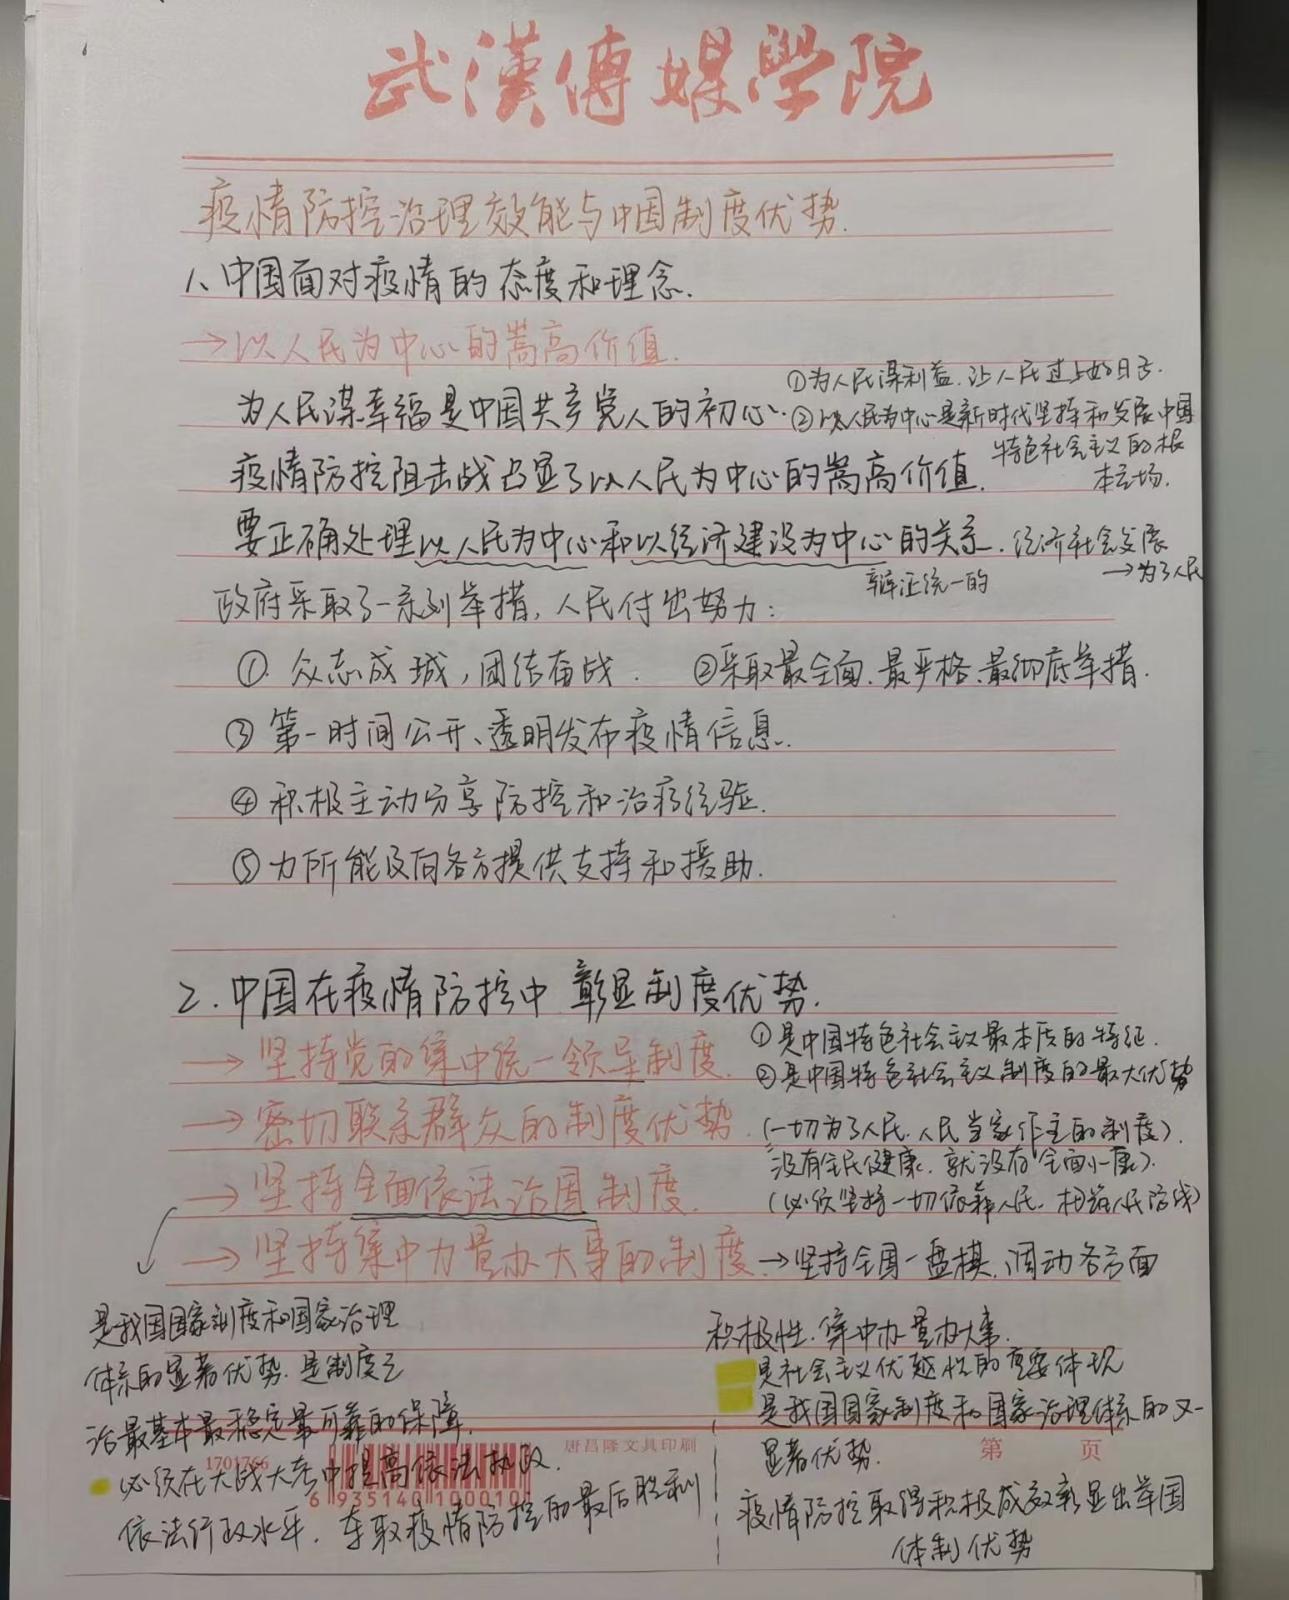 武漢傳媒學院
疫情防控治理效能与中国制度优势.
1、中国面对疫情的态度和理念.
→以人民为中心的嵩高价值.
①为人民谋利益、让人民过上好日子.
为人民谋幸福是中国共产党人的初心.
②以人民为中心是新时代坚持和发展中国
特色社会主义的根
本立场.
疫情防控阻击战凸显了以人民为中心的嵩高价值.
要正确处理以人民为中心和以经济建设为中心的关系.
经济社会发展
→为了人民
辩证统一的
政府采取了一系列举措,人民付出努力:
①.众志成城,团结奋战.
②采取最全面、最严格、最彻底举措.
③第一时间公开、透明发布疫情信息.
④积极主动分享防控和治疗经验.
⑤力所能及向各方提供支持和援助.
2.中国在疫情防控中彰显制度优势.
→坚持党的集中统一领导制度.
①是中国特色社会主义最本质的特征.
②是中国特色社会主义制度的最大优势
→密切联系群众的制度优势.
(一切为了人民.人民当家作主的制度).
没有全民健康.就没有全面小康).
→坚持全面依法治国制度.
(必须坚持一切依靠人民.构筑人民防线)
→坚持集中力量办大事的制度
→坚持全国一盘棋、调动各方面
积极性.集中办量办大事.
是社会主义优越性的重要体现
是我国国家制度和国家治理体系的又一
显著优势.
疫情防控取得积极成效彰显出举国
体制优势
是我国国家制度和国家治理
体系的显著优势.是制度之
治最基本最稳定最可靠的保障.
必须在大战大考中提高依法执政.
依法行政水平.夺取疫情防控的最后胜利
1701766
6 935140 100010
唐昌隆文具印刷
第 页